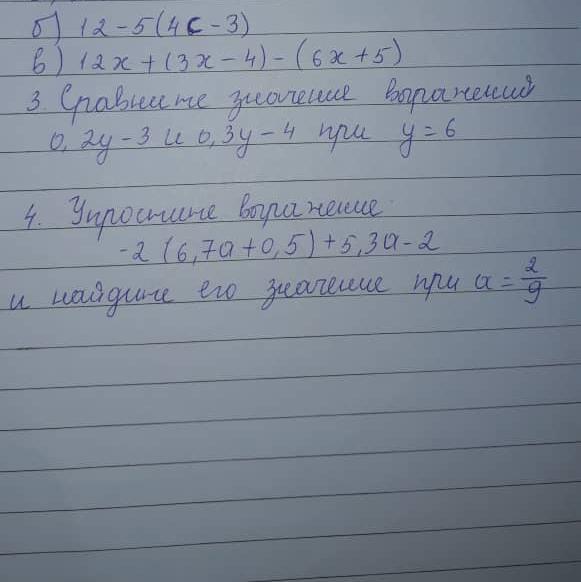 б) 12-5(4с-3)
в) 12х+(3х-4)-(6х+5)
3. Сравните значение выражений
0,2у-3 и 0,3у-4 при у=6
4. Упростите выражение
-2(6,7а+0,5)+5,3а-2
и найдите его значение при а=2/9